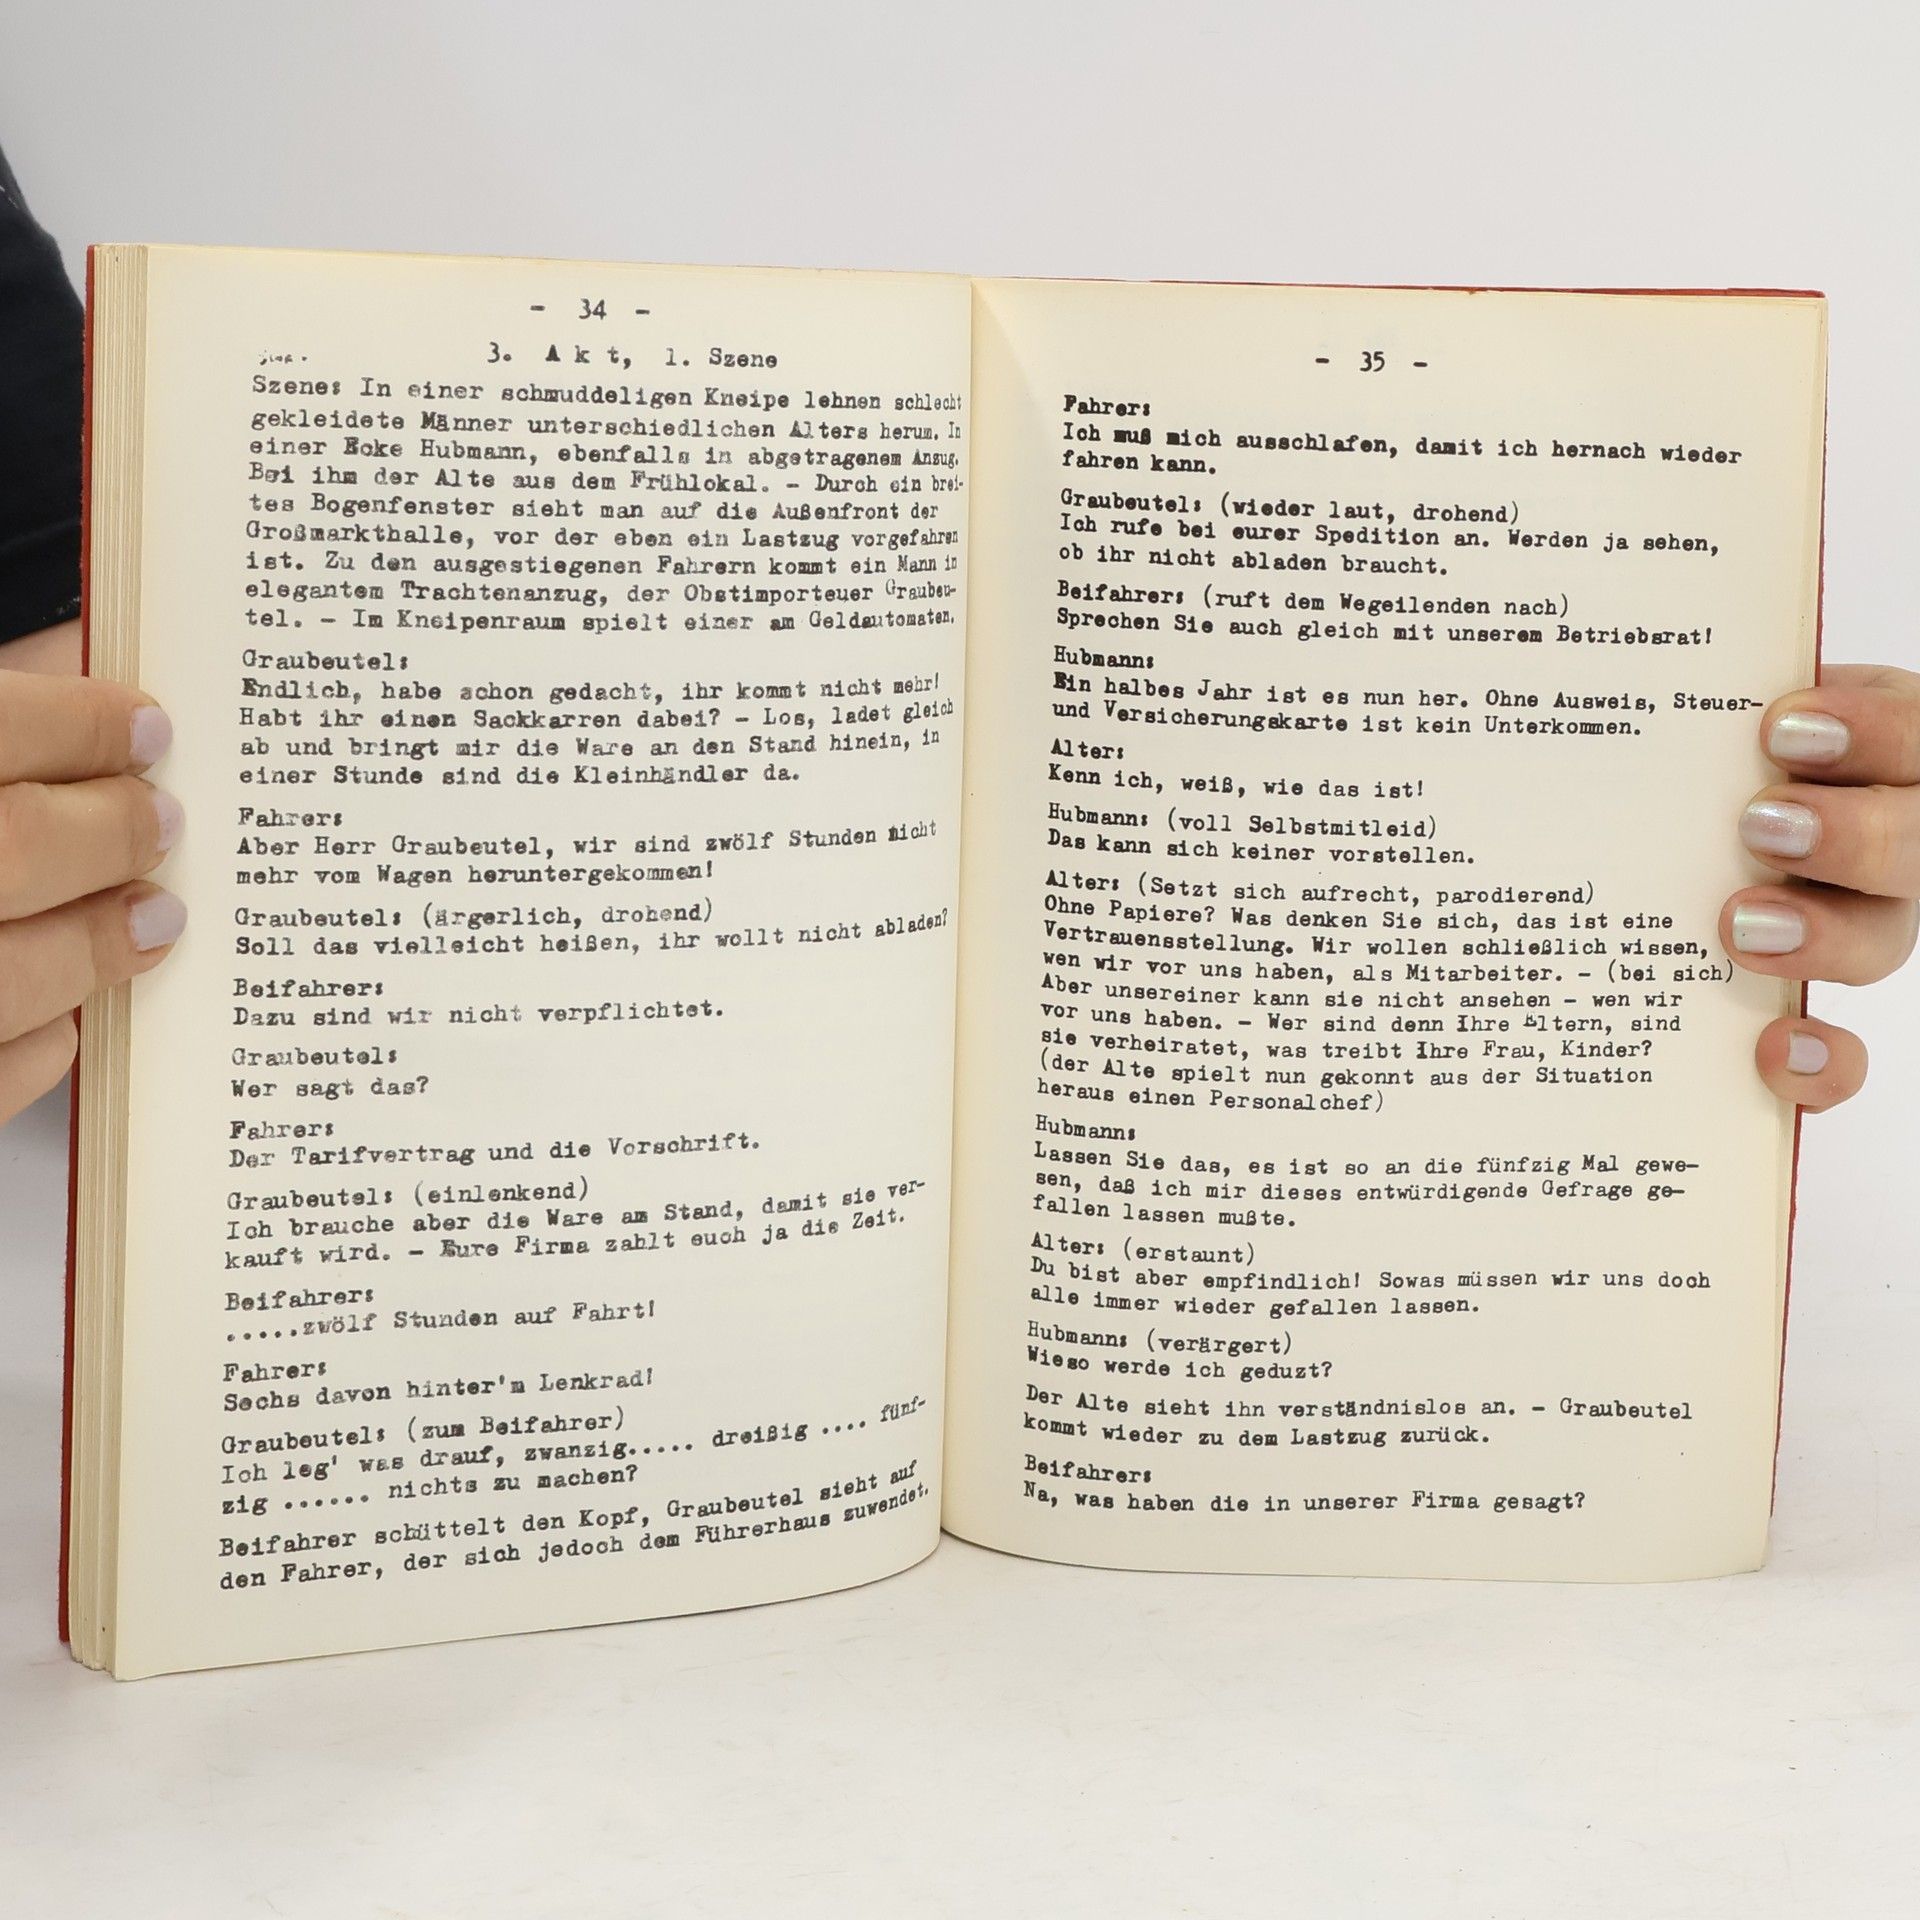 - 34 -
3. A k t, 1. Szene
Szene: In einer schmuddeligen Kneipe lehnen schlecht
gekleidete Männer unterschiedlichen Alters herum. In
einer Ecke Hubmann, ebenfalls in abgetragenem Anzug.
Bei ihm der Alte aus dem Frühlokal. - Durch ein brei-
tes Bogenfenster sieht man auf die Außenfront der
Großmarkthalle, vor der eben ein Lastzug vorgefahren
ist. Zu den ausgestiegenen Fahrern kommt ein Mann in
elegantem Trachtenanzug, der Obstimporteuer Graubeu-
tel. - Im Kneipenraum spielt einer am Geldautomaten.
Graubeutel:
Endlich, habe schon gedacht, ihr kommt nicht mehr!
Habt ihr einen Sackkarren dabei? - Los, ladet gleich
ab und bringt mir die Ware an den Stand hinein, in
einer Stunde sind die Kleinhändler da.
Fahrer:
Aber Herr Graubeutel, wir sind zwölf Stunden nicht
mehr vom Wagen heruntergekommen!
Graubeutel: (ärgerlich, drohend)
Soll das vielleicht heißen, ihr wollt nicht abladen?
Beifahrer:
Dazu sind wir nicht verpflichtet.
Graubeutel:
Wer sagt das?
Fahrer:
Der Tarifvertrag und die Vorschrift.
Graubeutel: (einlenkend)
Ich brauche aber die Ware am Stand, damit sie ver-
kauft wird. - Eure Firma zahlt euch ja die Zeit.
Beifahrer:
.....zwölf Stunden auf Fahrt!
Fahrer:
Sechs davon hinter'm Lenkrad!
Graubeutel: (zum Beifahrer)
Ich leg' was drauf, zwanzig..... dreißig .... fünf-
zig ...... nichts zu machen?
Beifahrer schüttelt den Kopf, Graubeutel sieht auf
den Fahrer, der sich jedoch dem Führerhaus zuwendet.
- 35 -
Fahrer:
Ich muß mich ausschlafen, damit ich hernach wieder
fahren kann.
Graubeutel: (wieder laut, drohend)
Ich rufe bei eurer Spedition an. Werden ja sehen,
ob ihr nicht abladen braucht.
Beifahrer: (ruft dem Wegeilenden nach)
Sprechen Sie auch gleich mit unserem Betriebsrat!
Hubmann:
Ein halbes Jahr ist es nun her. Ohne Ausweis, Steuer-
und Versicherungskarte ist kein Unterkommen.
Alter:
Kenn ich, weiß, wie das ist!
Hubmann: (voll Selbstmitleid)
Das kann sich keiner vorstellen.
Alter: (Setzt sich aufrecht, parodierend)
Ohne Papiere? Was denken Sie sich, das ist eine
Vertrauensstellung. Wir wollen schließlich wissen,
wen wir vor uns haben, als Mitarbeiter. - (bei sich)
Aber unsereiner kann sie nicht ansehen - wen wir
vor uns haben. - Wer sind denn Ihre Eltern, sind
sie verheiratet, was treibt Ihre Frau, Kinder?
(der Alte spielt nun gekonnt aus der Situation
heraus einen Personalchef)
Hubmann:
Lassen Sie das, es ist so an die fünfzig Mal gewe-
sen, daß ich mir dieses entwürdigende Gefrage ge-
fallen lassen mußte.
Alter: (erstaunt)
Du bist aber empfindlich! Sowas müssen wir uns doch
alle immer wieder gefallen lassen.
Hubmann: (verärgert)
Wieso werde ich geduzt?
Der Alte sieht ihn verständnislos an. - Graubeutel
kommt wieder zu dem Lastzug zurück.
Beifahrer:
Na, was haben die in unserer Firma gesagt?